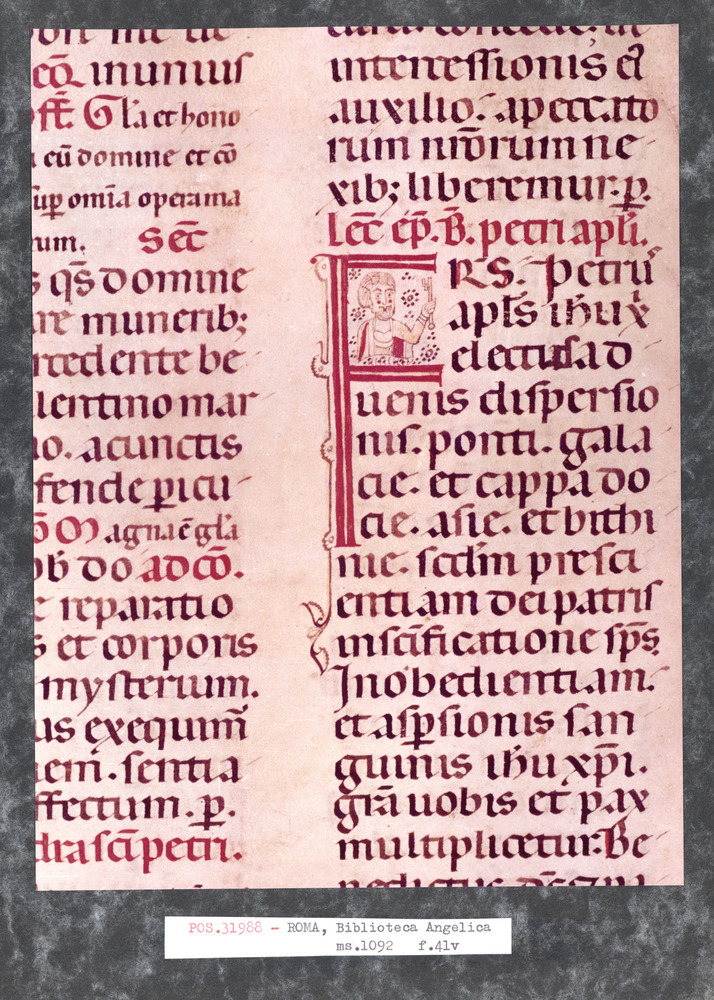 inuniuſ
Gl̄a et hono
eū domine et cō
ſup̄ om̄ia opera ma
rum. SEC̄
qs̄ domine
muneribꝫ
cedente be
lentino mar
o. acunctis
fende ꝑicu
Magna ē gl̄a
do adcō.
reparatio
et corporis
mysterium.
us exequim̄
em̄. sentia
ffectum. ꝑ.
dra sc̄i petri.
intercessionis et
auxilio. apeccato
rum nr̄orum ne
xibꝫ liberemur. ꝑ.
Lec̄ ep̄. B̄. petri apl̄i.
PETRS. Petrū
apl̄s ih̄u x̄
electis ad
uenis dispersio
nis. ponti. gala
cie. et cappado
cie. asie. et bithi
nie. scd̄m presci
entiam dei patris
in sc̄ificatione sp̄s.
In obedientiam.
et asp̄sionis san
guinis ih̄u xp̄i.
gr̄a uobis et pax
multiplicetur. Be
POS.31988 - ROMA, Biblioteca Angelica
ms.1092 f.41v